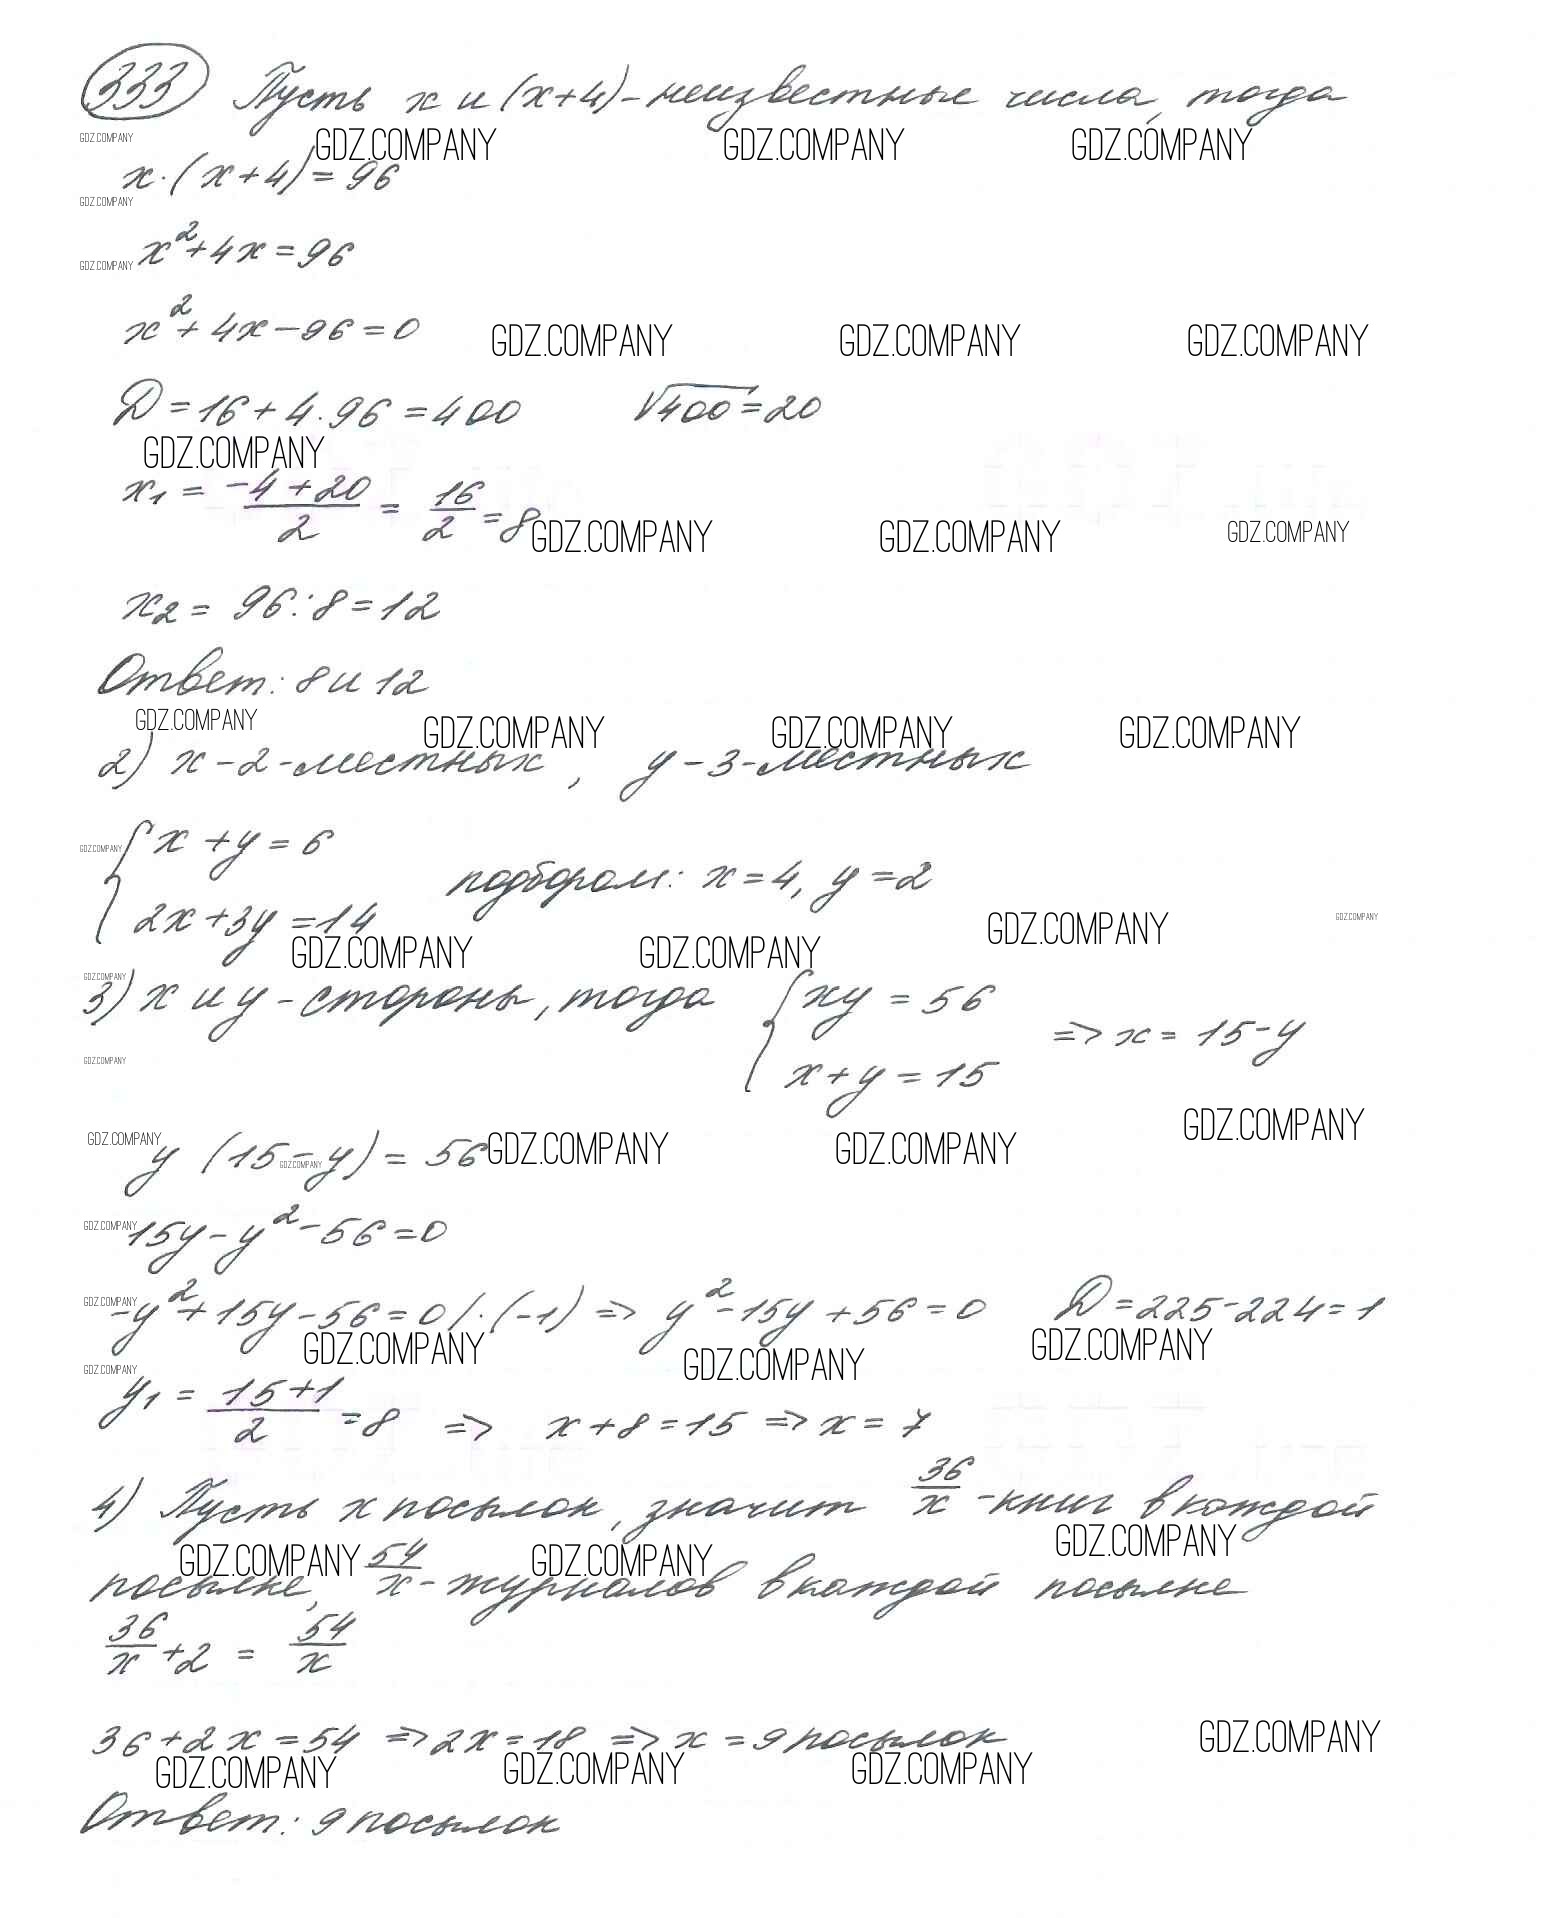 333 Пусть x и (x+4) - неизвестные числа, тогда
GDZ.COMPANY GDZ.COMPANY GDZ.COMPANY GDZ.COMPANY
x·(x+4)=96
GDZ.COMPANY
x²+4x=96
GDZ.COMPANY
x²+4x-96=0
GDZ.COMPANY GDZ.COMPANY GDZ.COMPANY
D=16+4·96=400 √400=20
GDZ.COMPANY
x₁ = (-4+20)/2 = 16/2 = 8
GDZ.COMPANY GDZ.COMPANY GDZ.COMPANY
x₂ = 96:8=12
Ответ: 8 и 12
GDZ.COMPANY GDZ.COMPANY GDZ.COMPANY GDZ.COMPANY
2) x-2-местных, y-3-местных
{ x+y=6
GDZ.COMPANY
подбором: x=4, y=2
2x+3y=14
GDZ.COMPANY GDZ.COMPANY
GDZ.COMPANY GDZ.COMPANY
GDZ.COMPANY
3) x и y - стороны, тогда { xy = 56
x+y=15 => x = 15-y
GDZ.COMPANY
GDZ.COMPANY
y (15-y) = 56
GDZ.COMPANY GDZ.COMPANY GDZ.COMPANY GDZ.COMPANY
15y-y²-56=0
GDZ.COMPANY
-y²+15y-56=0 /·(-1) => y²-15y+56=0 D=225-224=1
GDZ.COMPANY GDZ.COMPANY GDZ.COMPANY GDZ.COMPANY
GDZ.COMPANY
y₁ = (15+1)/2 = 8 => x+8=15 => x=7
4) Пусть x посылок, значит 36/x - книг в каждой
GDZ.COMPANY GDZ.COMPANY GDZ.COMPANY
посылке, 54/x - журналов в каждой посылке
36/x + 2 = 54/x
36+2x=54 => 2x=18 => x=9 посылок
GDZ.COMPANY
GDZ.COMPANY GDZ.COMPANY GDZ.COMPANY
Ответ: 9 посылок